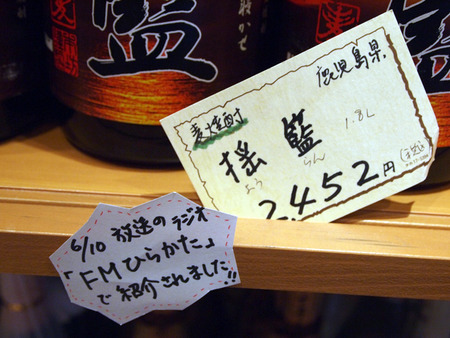 鹿児島県
麦焼酎
揺籃
ようらん
1.8L
2,452円
(税込)
6/10 放送のラジオ
「FMひらかた」
で紹介されました!!